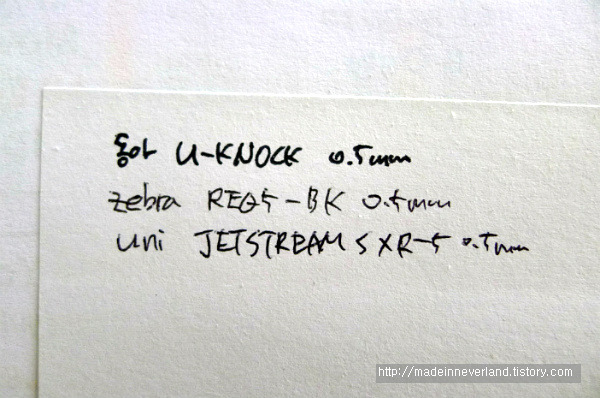 동아 U-KNOCK 0.5mm
zebra REQ5-BK 0.5mm
uni JETSTREAM SXR-5 0.5mm
http://madeinneverland.tistory.com